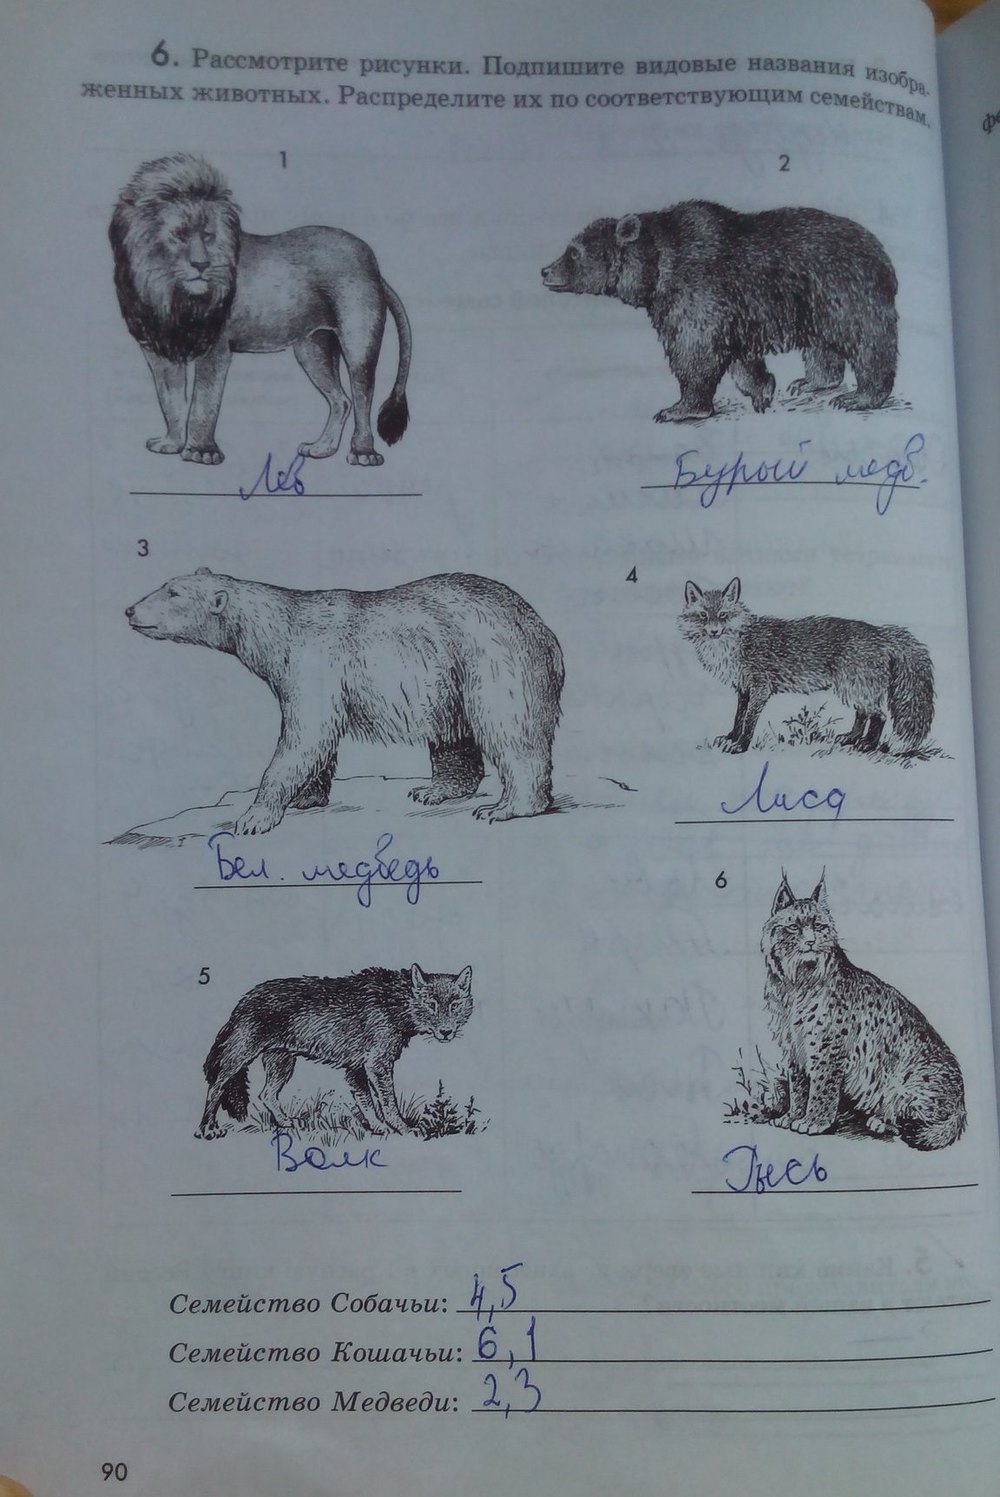 6. Рассмотрите рисунки. Подпишите видовые названия изобра-
женных животных. Распределите их по соответствующим семействам.
1
2
Лев
Бурый медв.
3
4
Лиса
Бел. медведь
6
5
Волк
Рысь
Семейство Собачьи: 4,5
Семейство Кошачьи: 6,1
Семейство Медведи: 2,3
90